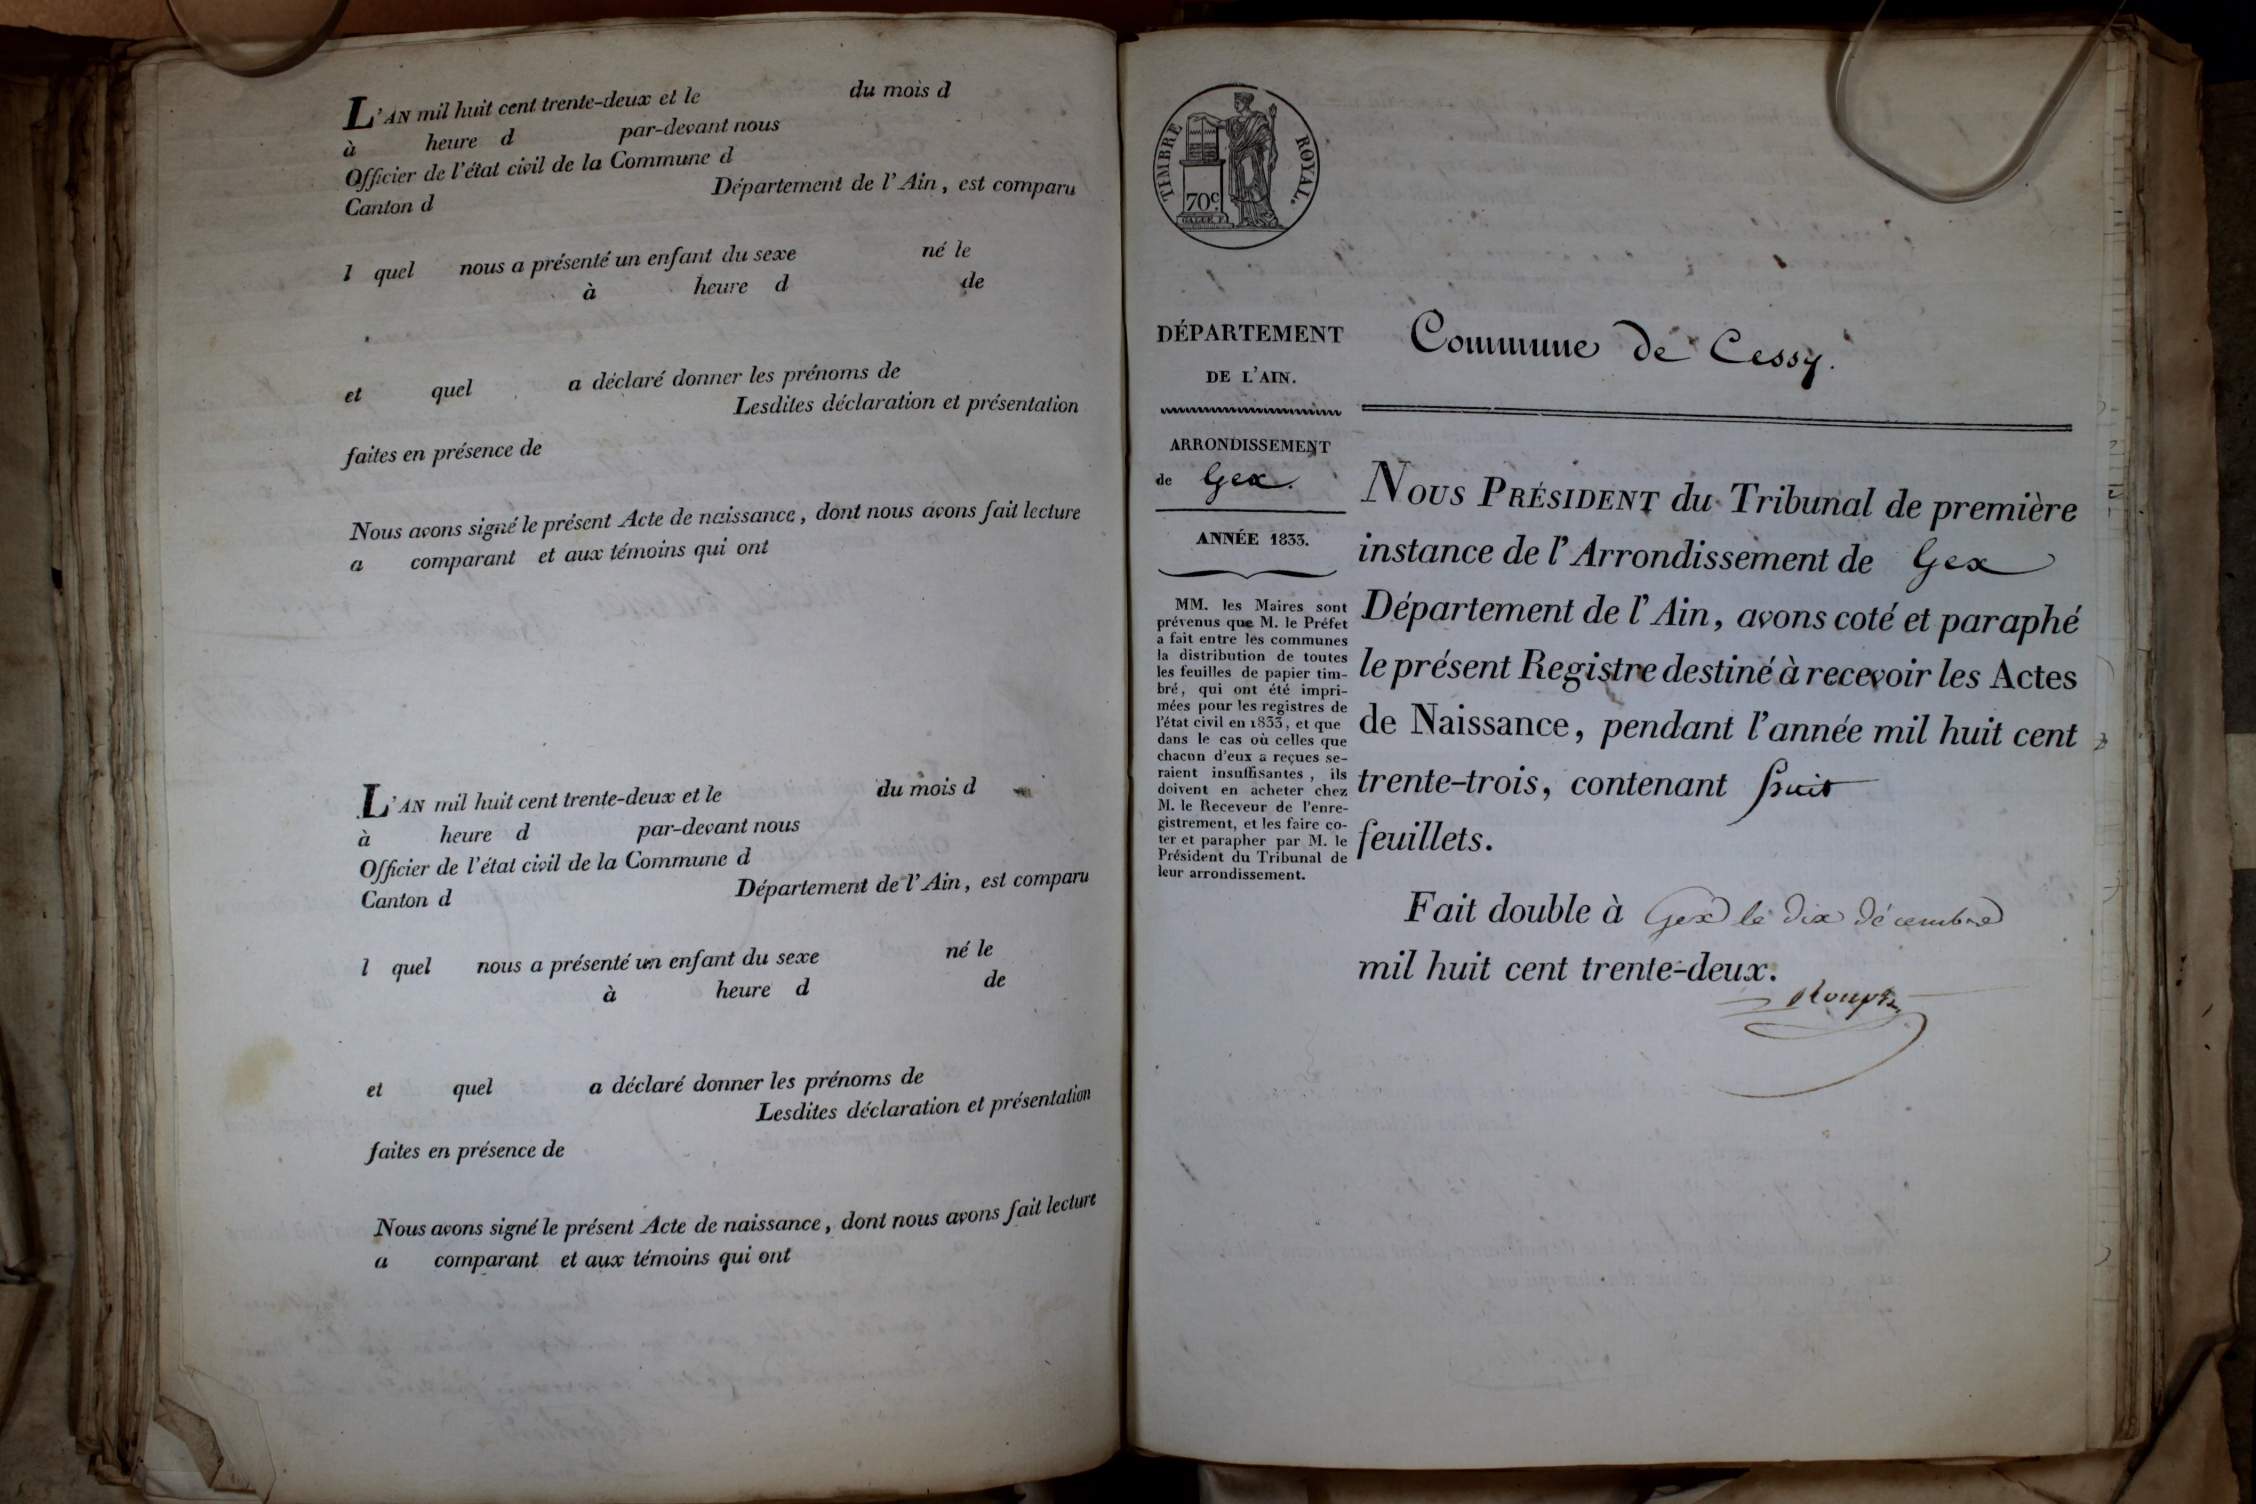 L'AN mil huit cent trente-deux et le du mois d
à heure d par-devant nous
Officier de l'état civil de la Commune d
Canton d Département de l'Ain, est comparu
l quel nous a présenté un enfant du sexe né le
à heure d de
et quel a déclaré donner les prénoms de
Lesdites déclaration et présentation
faites en présence de
Nous avons signé le présent Acte de naissance, dont nous avons fait lecture
a comparant et aux témoins qui ont
L'AN mil huit cent trente-deux et le du mois d
à heure d par-devant nous
Officier de l'état civil de la Commune d
Canton d Département de l'Ain, est comparu
l quel nous a présenté un enfant du sexe né le
à heure d de
et quel a déclaré donner les prénoms de
Lesdites déclaration et présentation
faites en présence de
Nous avons signé le présent Acte de naissance, dont nous avons fait lecture
a comparant et aux témoins qui ont
TIMBRE ROYAL.
70c.
DÉPARTEMENT
DE L'AIN.
ARRONDISSEMENT
de Gex.
ANNÉE 1833.
MM. les Maires sont
prévenus que M. le Préfet
a fait entre les communes
la distribution de toutes
les feuilles de papier tim-
bré, qui ont été impri-
mées pour les registres de
l'état civil en 1833, et que
dans le cas où celles que
chacun d'eux a reçues se-
raient insuffisantes, ils
doivent en acheter chez
M. le Receveur de l'enre-
gistrement, et les faire co-
ter et parapher par M. le
Président du Tribunal de
leur arrondissement.
Commune de Cessy.
NOUS PRÉSIDENT du Tribunal de première
instance de l'Arrondissement de Gex
Département de l'Ain, avons coté et paraphé
le présent Registre destiné à recevoir les Actes
de Naissance, pendant l'année mil huit cent
trente-trois, contenant huit
feuillets.
Fait double à Gex le dix décembre
mil huit cent trente-deux.